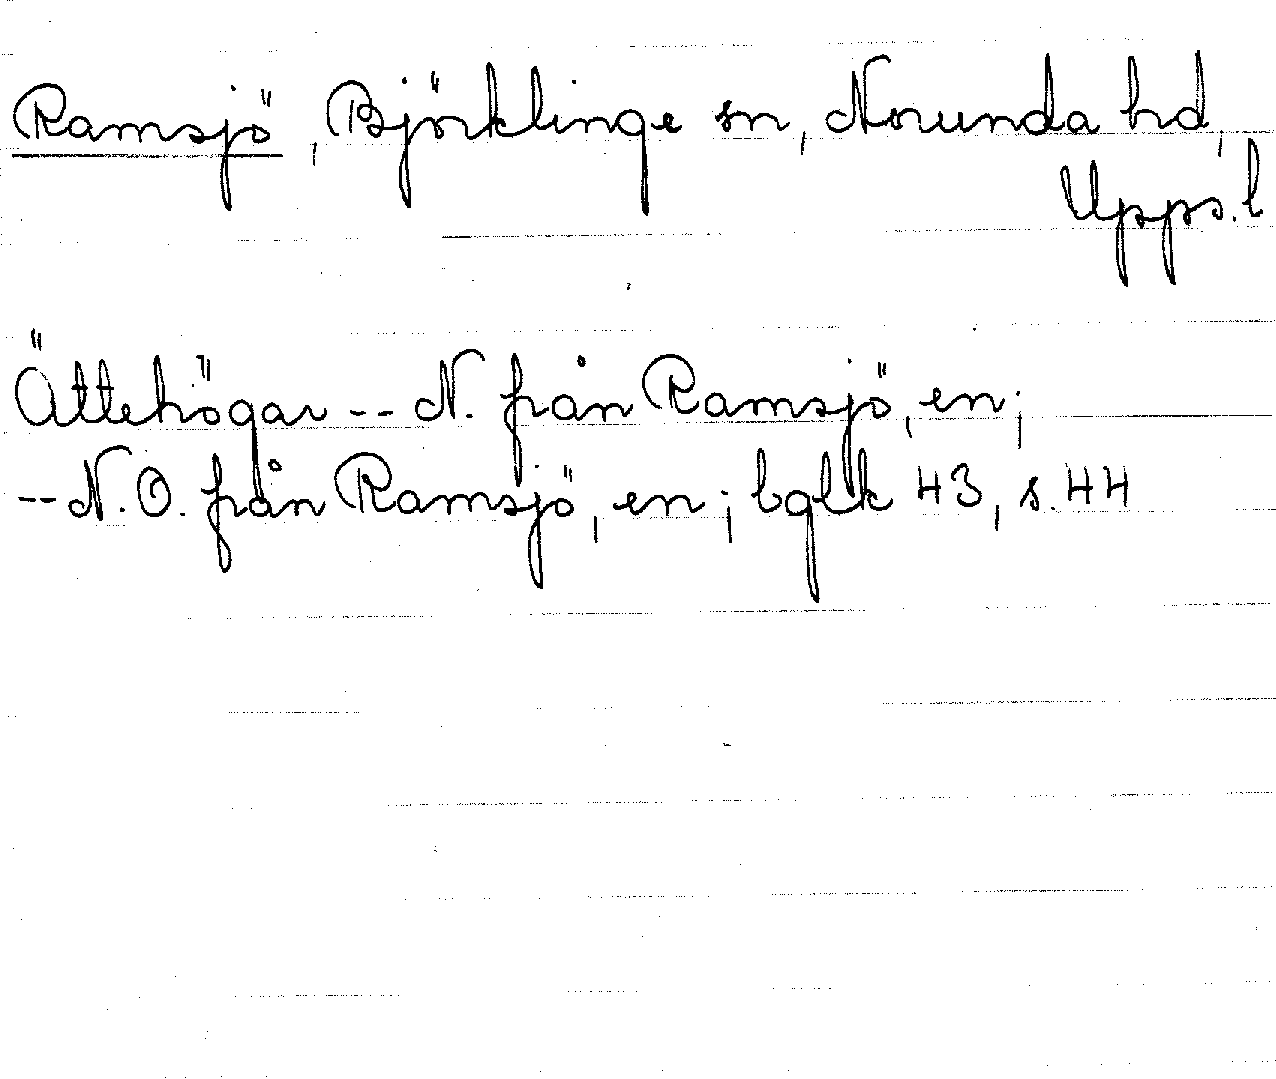 Ramsjö, Björklinge sn, Norunda hd,
Upps. l
Ättehögar -- N. från Ramsjö, en;
-- N.O. från Ramsjö, en; bglk 43, s. 44